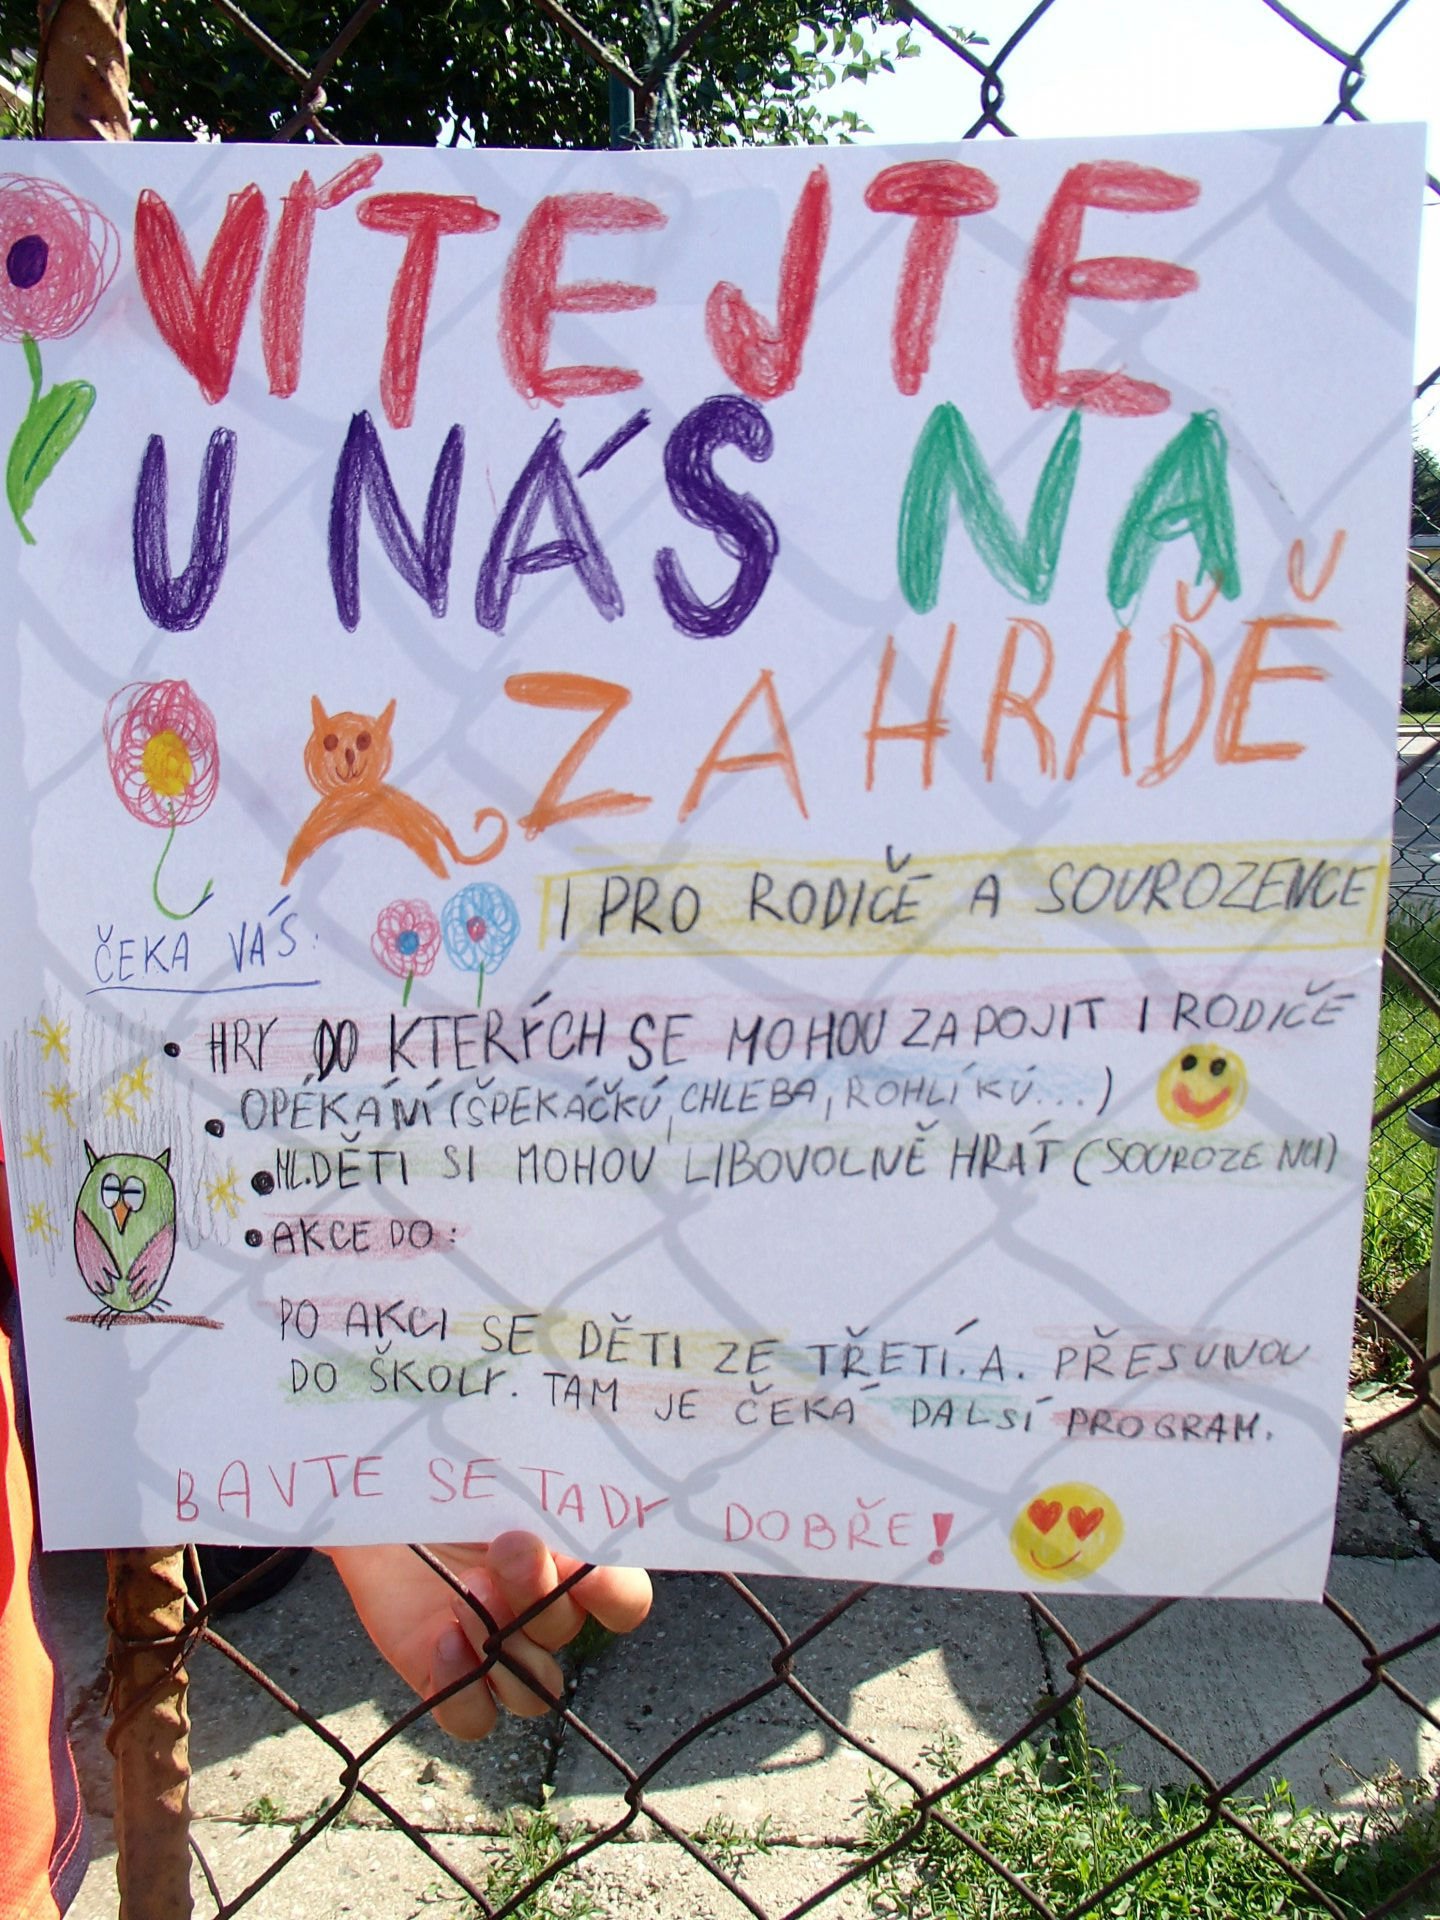 VÍTEJTE
U NÁS NA
ZAHRADĚ
I PRO RODIČE A SOUROZENCE
ČEKÁ VÁS:
• HRY DO KTERÝCH SE MOHOU ZAPOJIT I RODIČE
• OPÉKÁNÍ (ŠPEKÁČKŮ, CHLEBA, ROHLÍKŮ...)
• ML.DĚTI SI MOHOU LIBOVOLNĚ HRÁT (SOUROZENCI)
• AKCE DO:
PO AKCI SE DĚTI ZE TŘETÍ.A. PŘESUNOU
DO ŠKOLY. TAM JE ČEKÁ DALSÍ PROGRAM.
BAVTE SE TADY DOBŘE!